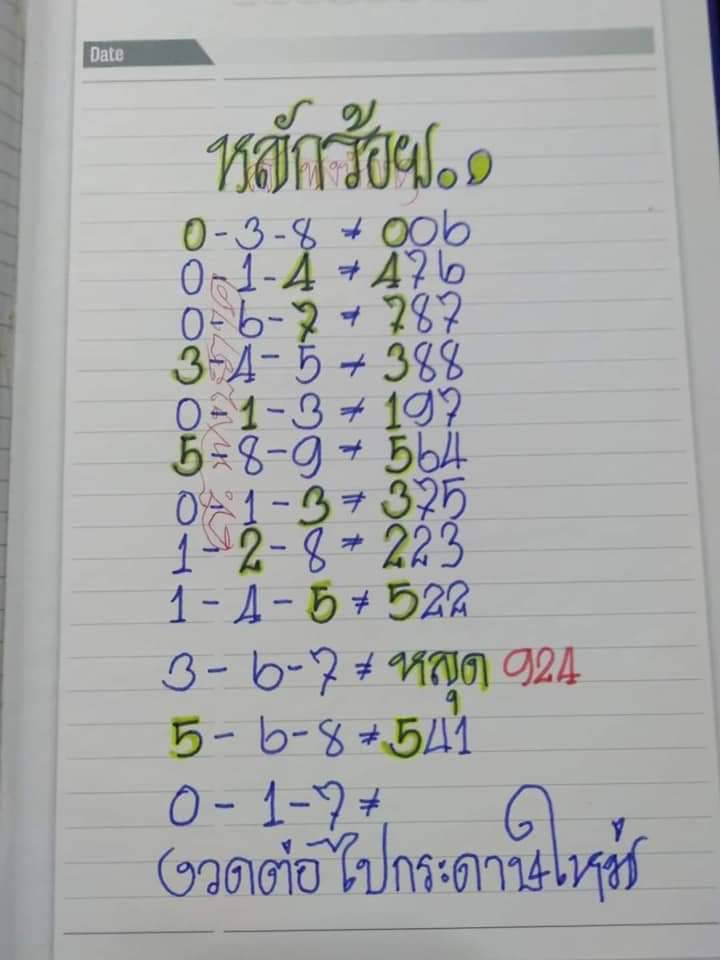 Date
หลักร้อย..
0-3-8 ≠ 006
0-1-4 ≠ 476
0-6-7 ≠ 787
3-4-5 ≠ 388
0-1-3 ≠ 197
5-8-9 ≠ 564
0-1-3 ≠ 375
1-2-8 ≠ 223
1-4-5 ≠ 522
3-6-7 ≠ หลุด 924
5-6-8 ≠ 541
0-1-7 ≠
งวดต่อไปกระดาษใหม่